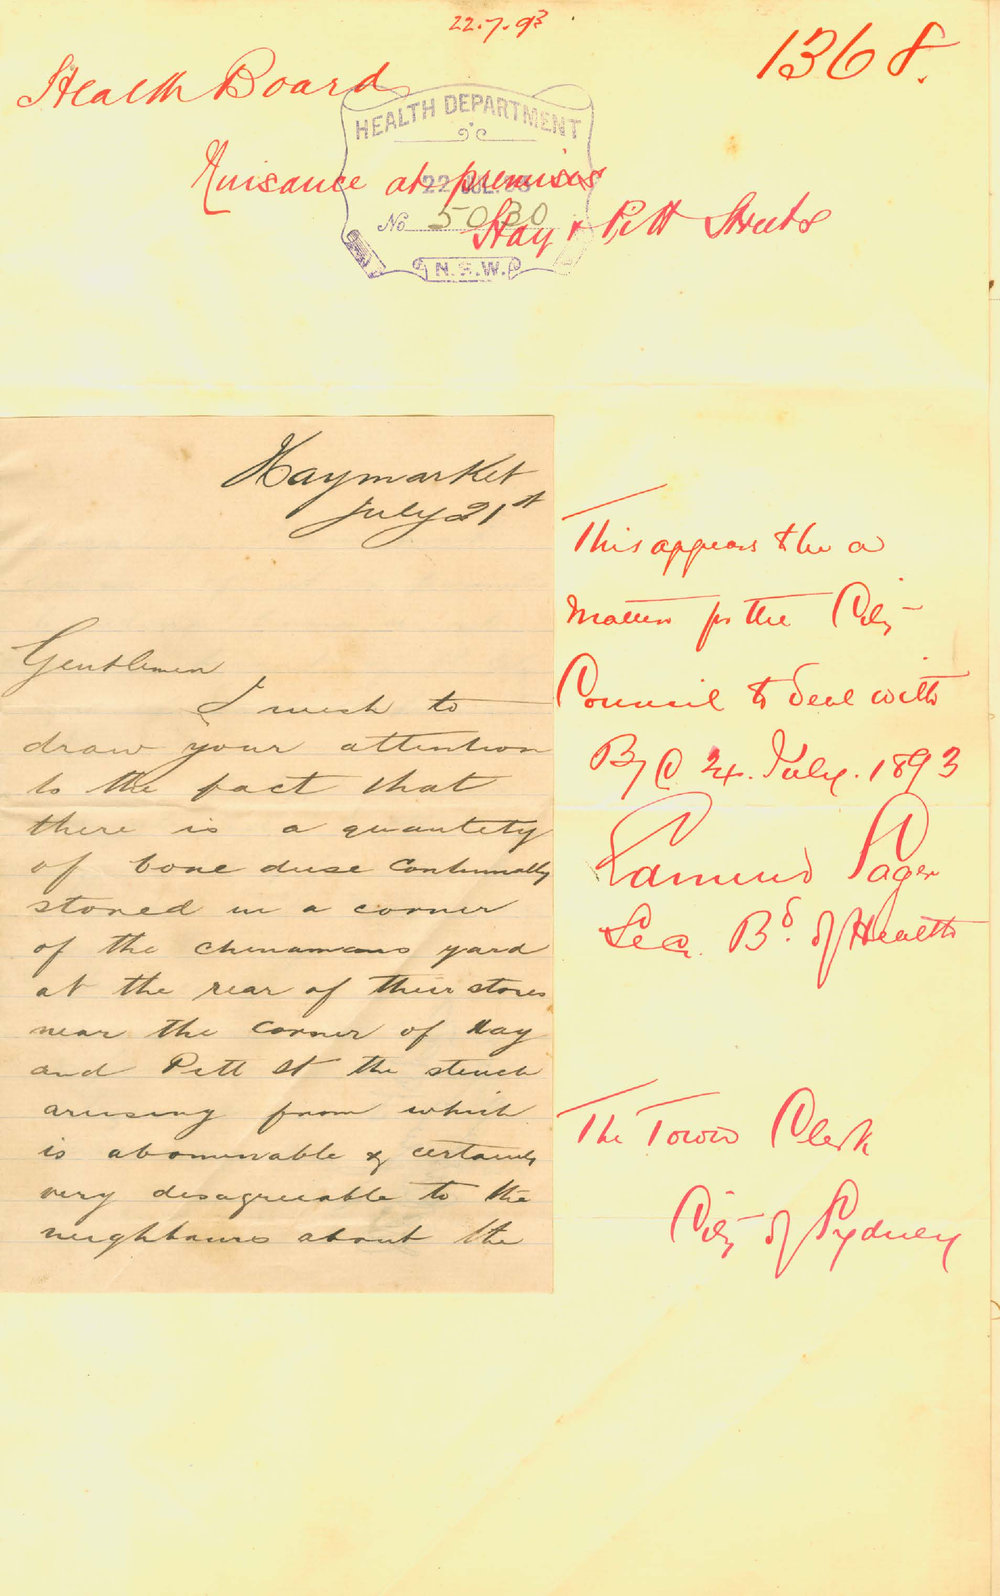 22.7.93
1368.
Health Board
HEALTH DEPARTMENT
Nuisance at premises
22 JUL. 93
No 5030
Hay & Pitt Streets
N.S.W.
Haymarket
July 21st
Gentlemen
I wish to
draw your attention
to the fact that
there is a quantity
of bone duse continually
stored in a corner
of the chinamans yard
at the rear of their stores
near the corner of Hay
and Pitt St the stench
arising from which
is abominable & certainly
very disagreeable to the
neighbours about the
This appears to be a
matter for the City
Council to deal with
B/C 24. July. 1893
Edmund Sager
Sec. Bd. of Health
The Town Clerk
City of Sydney